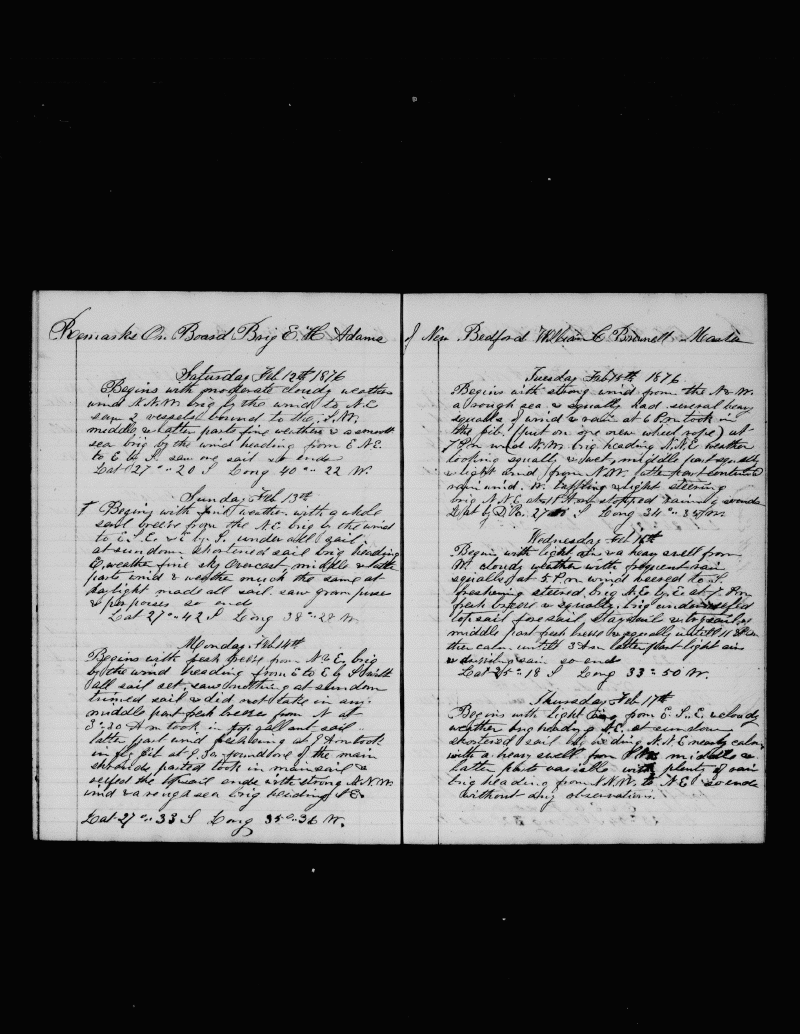 Remarks On Board Brig E. H Adams
Saturday Feb 12th 1876
Begins with moderate cloudy weather
wind N.N.W brig by the wind to N.E
saw 2 vessels bound to the S.W.
middle & latter parts fine weather & a smooth
sea brig by the wind heading from E.N.E.
to E by S. saw one sail so ends
Lat 27°.. 20 S Long 40°.. 22 W.
Sunday Feb 13th
Begins with fine weather with a whole
sail breeze from the N.E brig by the wind
to E.S.E. & E. by S. under all sail
at sundown shortened sail brig heading
E. weather fine sky Overcast middle & latter
parts wind & weather much the same at
daylight made all sail saw grampuses
& porpoises so ends
Lat 27°.. 42 S Long 38°.. 28 W.
Monday Feb 14th
Begins with fresh breeze from N.E. brig
by the wind heading from E to E by S with
all sail set, saw nothing at sundown
trimed sail & did not take in any
middle part fresh breeze from N at
3-20 Am took in top gallant sail
latter part wind freshening at Am took
in fg. Jib at of the main
shrouds parted took in mainsail &
reefed the topsail ends with strong N.N.W
wind & a rough sea brig heading
Lat 27°.. 33 S Long 35°.. 36 W.
of New Bedford William C Brownell Master
Tuesday Feb 15th 1876
Begins with strong wind from the N.W.
a rough sea & squally had several heavy
squalls of wind & rain at 6 Pm took in
the jib (put on one new wheel rope) at
7 Pm wind N.W. brig heading N.N.E weather
looking squally & wet, middle part squally
& light wind from N.W. latter part continued
rain wind W. baffling & light steering
brig N.N.E at Am stopped raining so ends
Lat by D.R. 27 S Long 34°.. 35 W
Wednesday Feb 16th
Begins with light air & a heavy swell from
W. cloudy weather with frequent rain
squalls at 5 Pm wind veered to S.
freshening steered brig N.E. by E. at 7 Pm
fresh breeze & squally, brig under reefed
topsail foresail staysail & trysail
middle part fresh breeze & squally until 11 Pm
then calm until 3 Am latter part light airs
& drizzling rain so ends
Lat 25°.. 18 S Long 33°.. 50 W.
Thursday Feb 17th
Begins with light from E.S.E. & cloudy
weather brig heading N.E. at sundown
shortened sail brig heading N.N.E nearly calm
with a heavy swell from middle &
latter part variable with plenty of rain
brig heading from N.W. to N.E so ends
without any observation.